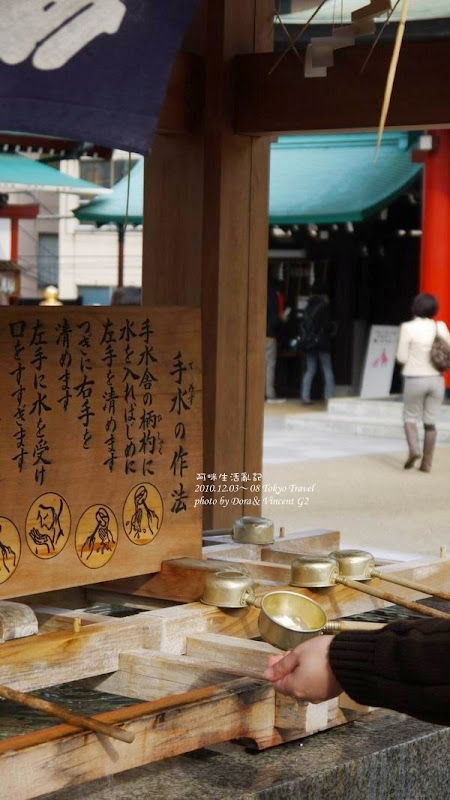 手水の作法
手水舎の柄杓に
水を入ればじめに
左手を清めます
つぎに右手を
清めます
左手に水を受け
口をすすぎます
阿咪生活亂記
2010.12.03～08 Tokyo Travel
photo by Dora& Vincent G2